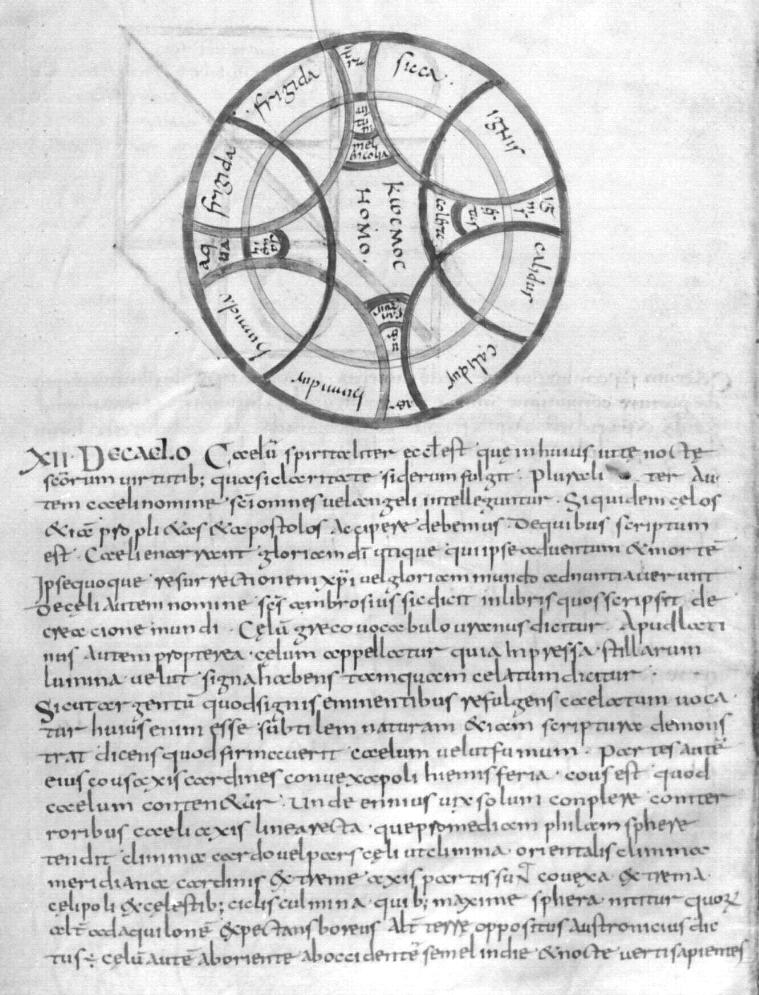 frigida
sicca
ignis
frigida
calidus
calidus
humidus
humida
aqua
mel
ancolia
KωCMOC
HOMO.
XII. DE CAELO Caelū spiritaliter eccl est que in huius uite nocte
scōrum uirtutib; quasi claritate siderum fulgit. Plurali ter Au
tem caeli nomine sci omnes uel angeli intelleguntur. Siquidem celos
& iā pro pli & as & apostolos Accipere debemus De quibus scriptum
est. Caeli enarrant gloriam dī utique qui ipse aduentum & mortē
Ipse quoque resurrectionem xp̄i uel gloriam mundo adnuntiauerunt
De celi Autem nomine scs ambrosius sic dicit in libris quos scripsit de
creacione mundi. Celū greco uocabulo uranus dicitur. Apud lati
nus Autem propterea celum appellatur quia Inpressa stillarum
lumina uelut signa habens tamquam celatum dicitur.
Sicut argentū quod signis eminentibus refulgens caelatum uoca
tur huius enim esse subtilem naturam & iam scriptura demons
trat dicens quod firmauerit caelum uelut fumum. Partes autē
eius cous axis cardines conuexa poli hiemisferia. cous est quod
caelum contenetur. Unde ennius uix solum conplere conter
roribus caeli axis linea recta que pro mediam philam sphere
tendit climma cardo uel pars celi ut climma orientalis climma
meridiana cardinis extreme axis partis sun couexa extrema
celi poli & celestib; ciclis culmina quib; maxime sphera nititur quor
alt ad aquilone expectans boreus Alt terre oppositus Austronicius dic
tus ÷ celū autē ab oriente ab occidentē semel in die & nocte uerti sapientes